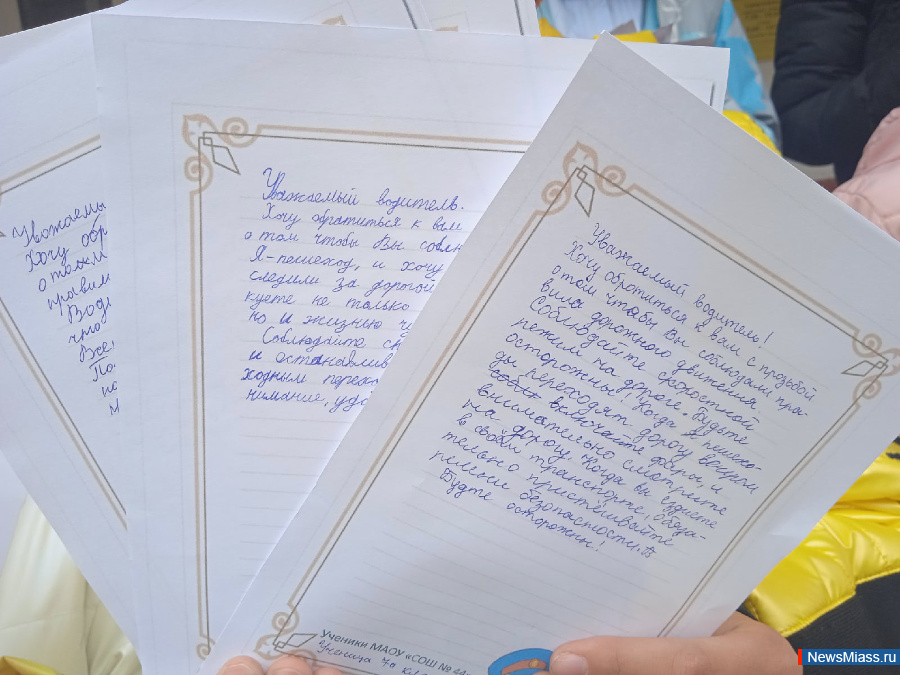 Уважаемы
Хочу обр
о том
прави
Води
что
Все
По
но
м
Уважаемый водитель.
Хочу обратиться к вам
о том чтобы Вы соблю
Я-пешеход, и хочу
следили за дорогой
куете не только
но и жизнью чу
Соблюдайте ск
и останавлив
ходным перехо
нимание, уда
Уважаемый водитель!
Хочу обратиться к вам с прозьбой
о том чтобы Вы соблюдали пра-
вила дорожного движения.
Соблюдайте скоростной
режим на дороге. Будьте
осторожны! Когда пешехо-
ды переходят дорогу вечером
включайте фары, и
внимательно смотрите
на дорогу. Когда вы ездиете
в своём транспорте, обяза-
тельно пристёгивайте
ремень безопасности.
Будте
осторожны!
Ученики МАОУ «СОШ № 44»
Ученица 7о кл
NewsMiass.ru